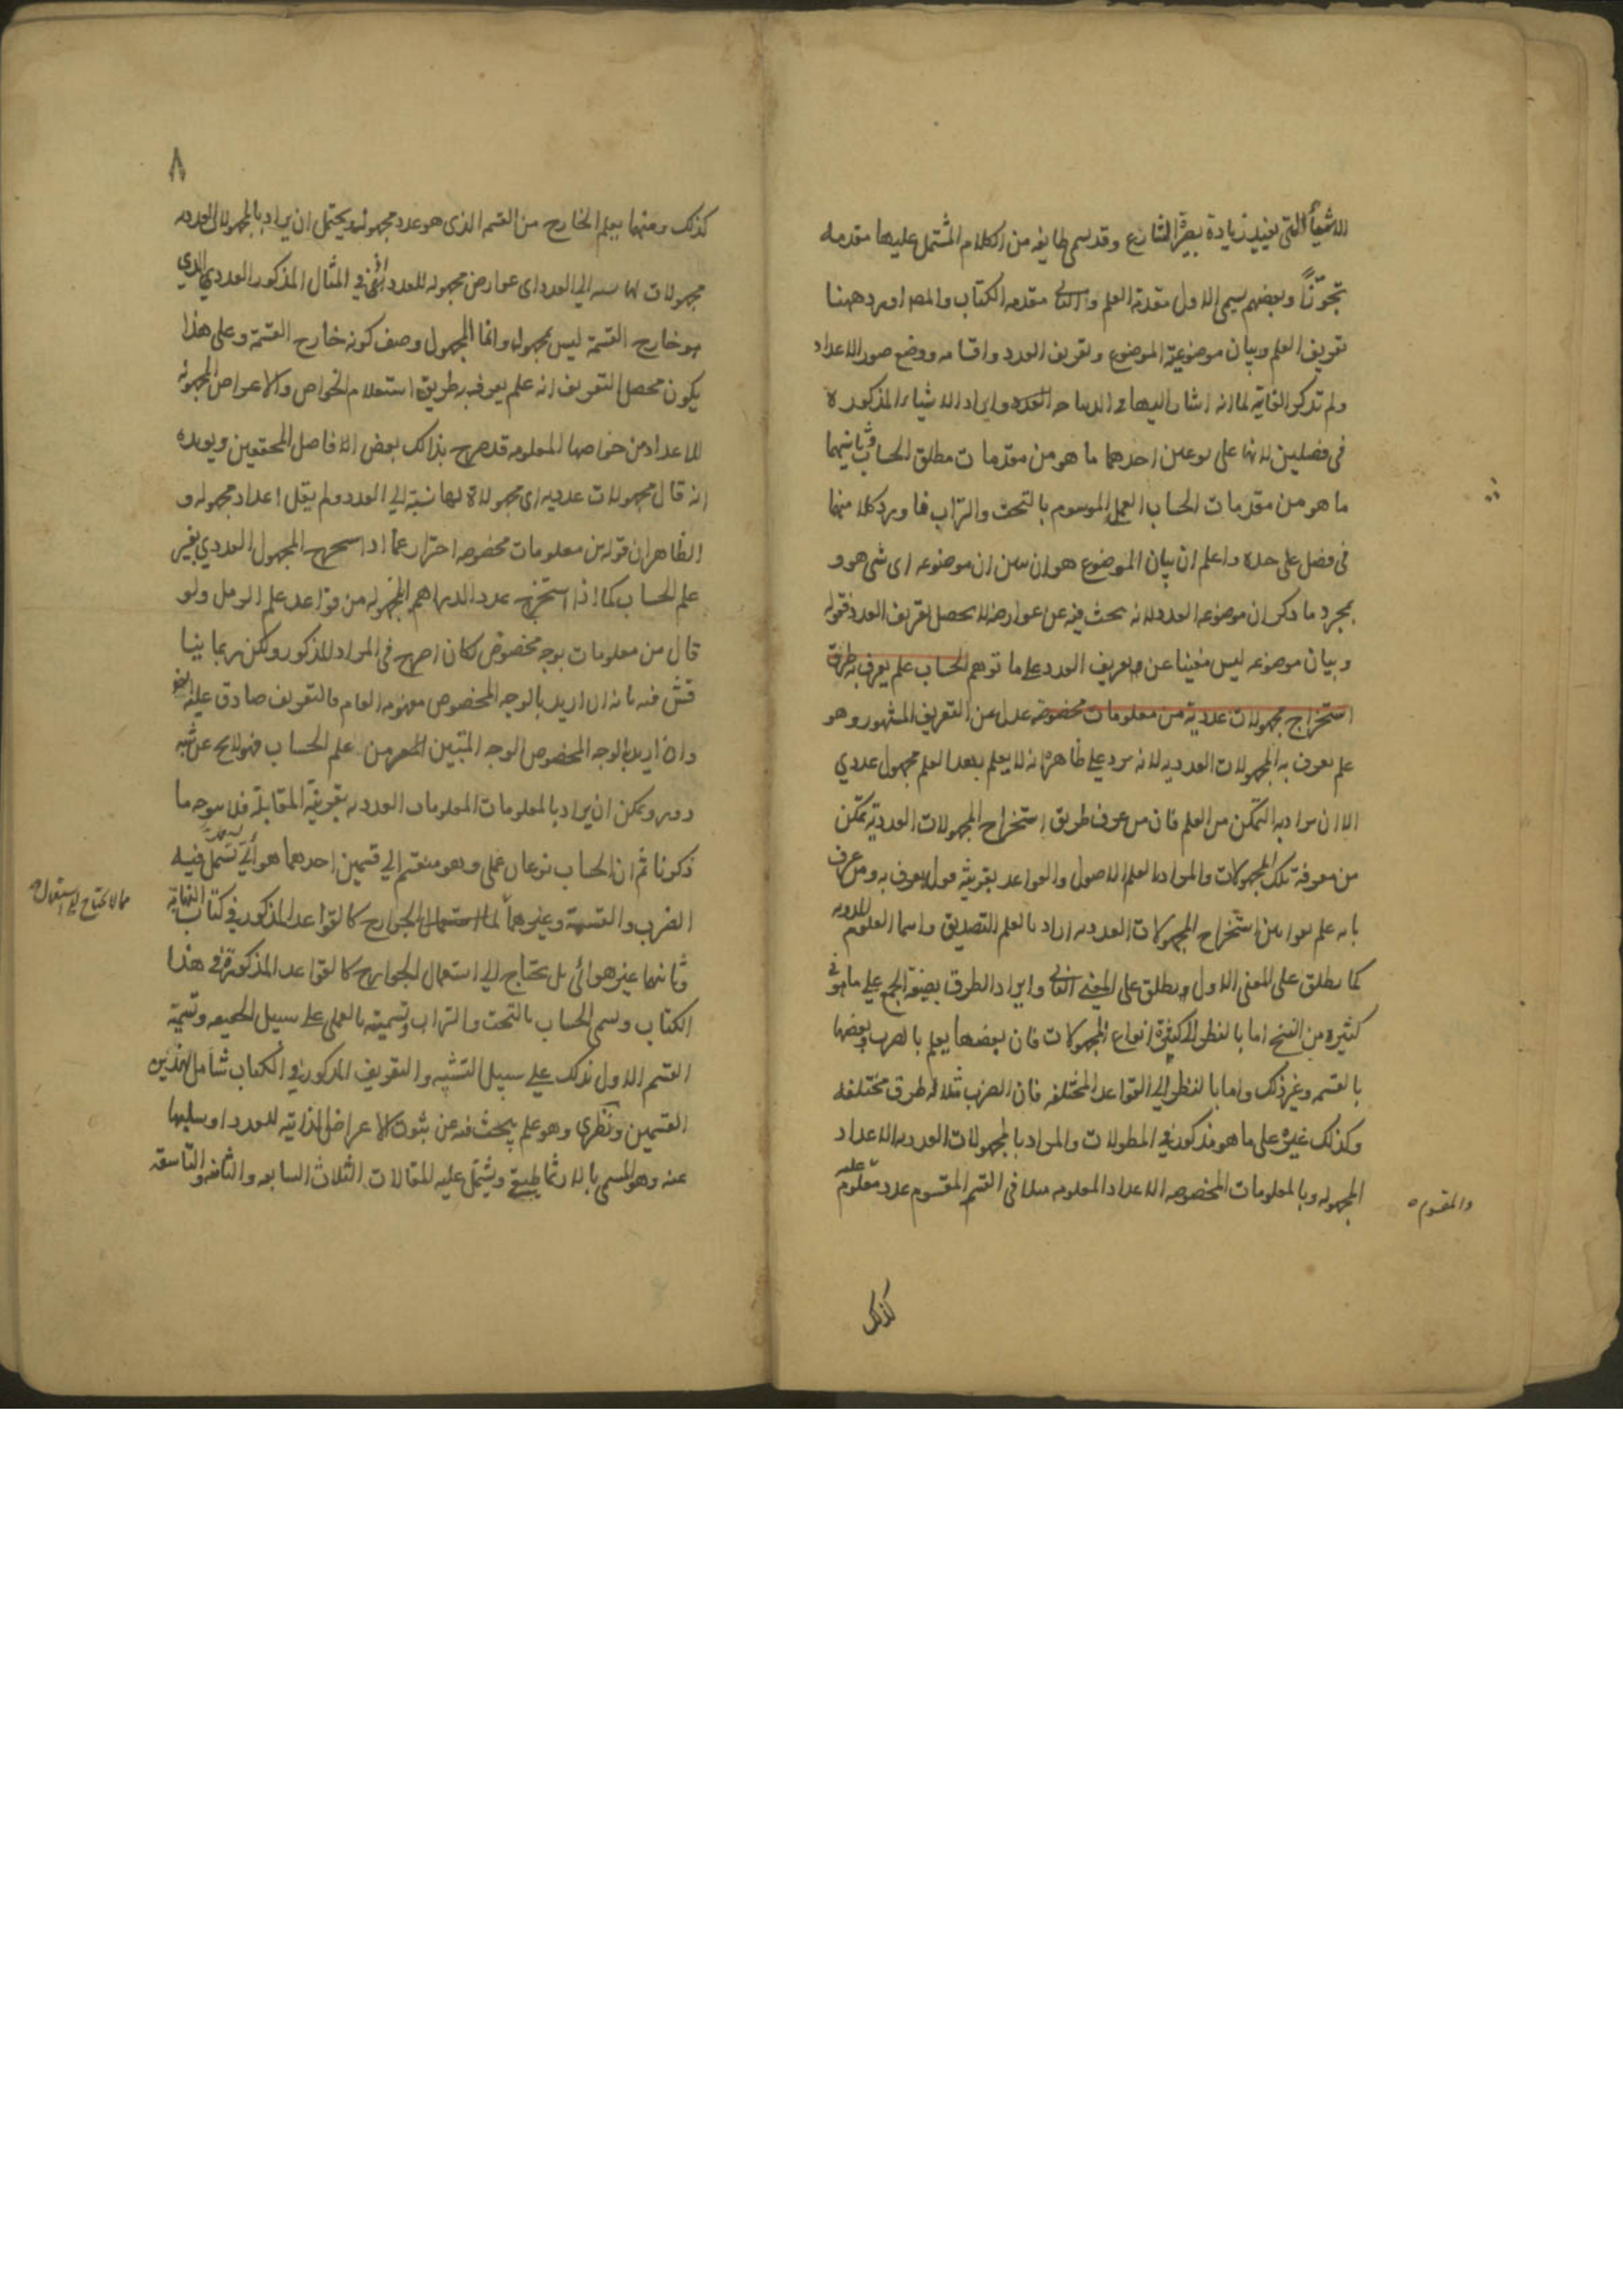 للاشياء التى تفيد زيادة بصيرة الشارع وقد يسمى طايفه من الكلام المشتمل عليها مقدمه
تجوّزًا وبعضهم يسمى الاول مقدمة العلم والثانى مقدمه الكتاب والمص اورد ههنا
تعريف العلم وبيان موضوعية الموضوع وتعريف العدد واقسامه ووضع صور الاعداد
ولم تذكر الغاية لما انه اشار اليها فى الديباجه وايراد الاشياء المذكورة
فى فصلين لانها على نوعين احدهما ما هو من مقدمات مطلق الحساب وثانيهما
ما هو من مقدمات الحساب العملى الموسوم بالتحت والتراب فاورد كلا منهما
فى فصل على حده واعلم ان بيان الموضوع هو ان يبين ان موضوعه اى شى هو و
بمجرد ما ذكر ان موضوعه العدد لانه يبحث فيه عن عوارضه لا يحصل تعريف العدد فقوله
وبيان موضوعه ليس مغنيا عن تعريف العدد على ما توهم الحساب علم يعرف به طرق
استخراج مجهولات عددية من معلومات مخصوصه عدل عن التعريف المشهور وهو
علم يعرف به المجهولات العدديه لانه يرد على ظاهره انه لا يعلم بهذا العلم مجهول عددي
الا ان يراد به التمكن من العلم فان من عرف طريق استخراج المجهولات العددية تمكن
من معرفة تلك المجهولات والمراد بالعلم الاصول والقواعد بقرينة قوله يعرف به ومن عرف
بانه علم بقوانين استخراج المجهولات العدديه اراد بالعلم التصديق واسما العلوم المدونه
كما يطلق على المعنى الاول يطلق على المعنى الثانى وايراد الطرق بصيغة الجمع على ما هو فى
كثيرة من النسخ اما بالنظر الى كثرة انواع المجهولات فان بعضها يعلم بالضرب وبعضها
بالقسمه وغير ذلك واما بالنظر الى القواعد المختلفه فان الضرب مثلا له طرق مختلفه
وكذلك غيره على ما هو مذكور فى المطولات والمراد بالمجهولات العدديه الاعداد
المجهوله وبالمعلومات المخصوصه الاعداد المعلومه مثلا فى القسم المقسوم عدد معلوم
والمقسوم
عليه
كذلك
٨
كذلك ومنهما يعلم الخارج من القسم الذى هو عدد مجهول ويحتمل ان يراد بالمجهولات العدديه
مجهولات لها نسبه الى العدد اى عوارض مجهوله للعدد ففى المثال المذكور العدد الذي
هو خارج القسمة ليس بمجهول وانما المجهول وصف كونه خارج القسمة وعلى هذا
يكون محصل التعريف انه علم يعرف به طريق استعلام الخواص والاعراض المجهولة
للاعداد من خواصها المعلومه قد صرح بذالك بعض الافاضل المحققين ويويده
انه قال مجهولات عدديه اى مجهولاة لها نسبة الى العدد ولم يقل اعداد مجهوله و
الظاهر ان قوله من معلومات مخصوصه احتراز عما اذا استخرج المجهول العددي بغير
علم الحساب كما اذا استخرج عدد الدراهم المجهوله من قواعد علم الرمل ولو
قال من معلومات بوجه مخصوص لكان اصرح فى المراد المذكور ولكن ربما ينا
قش فيه بانه ان اريد بالوجه المخصوص مفهومه العام فالتعريف صادق عليه ايضا
وان اريد بالوجه المخصوص الوجه المتبين من علم الحساب فهو لايح عن شبه
دور ويمكن ان يراد بالمعلومات المعلومات العدديه بقرينة المقابلة فلا يتوجه ما
ذكرنا ثم ان الحساب نوعان عملى وهو منقسم الى قسمين احدهما هوائى يستعمل فيه
الضرب والقسمة وغيرهما استعمال الجوارح كالقواعد المذكور فى كتاب البهايه
مما لا يحتاج الى استعمال
وثانيهما غير هوائى بل يحتاج الى استعمال الجوارح كالقواعد المذكورة فى هذا
الكتاب ويسمى الحساب بالتحت والتراب وتسميته بالعملى على سبيل الحقيقه وتسمية
القسم الاول بذلك على سبيل التشبيه والتعريف المذكور فى الكتاب شامل لهذين
القسمين ونظرى وهو علم يبحث فيه عن ثبوت الاعراض الذاتية للعدد او سلبها
عنه وهو المسمى بالارثماطيقى ويشتمل عليه المقالات الثلاث السابعه والثامنه والتاسعه